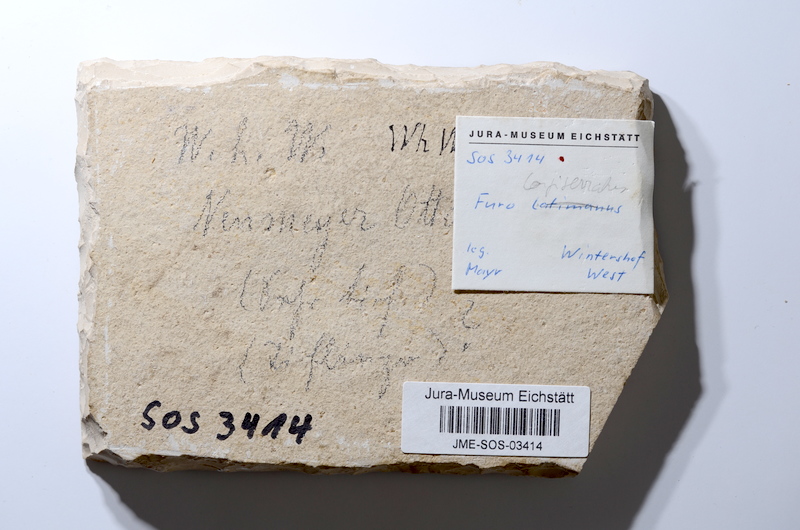 W. h. W.
Wh W
Neumeyer Otto
SOS 3414
JURA-MUSEUM EICHSTÄTT
SOS 3414
Furo latimanus
leg. Wintershof
Mayr West
Jura-Museum Eichstätt
JME-SOS-03414